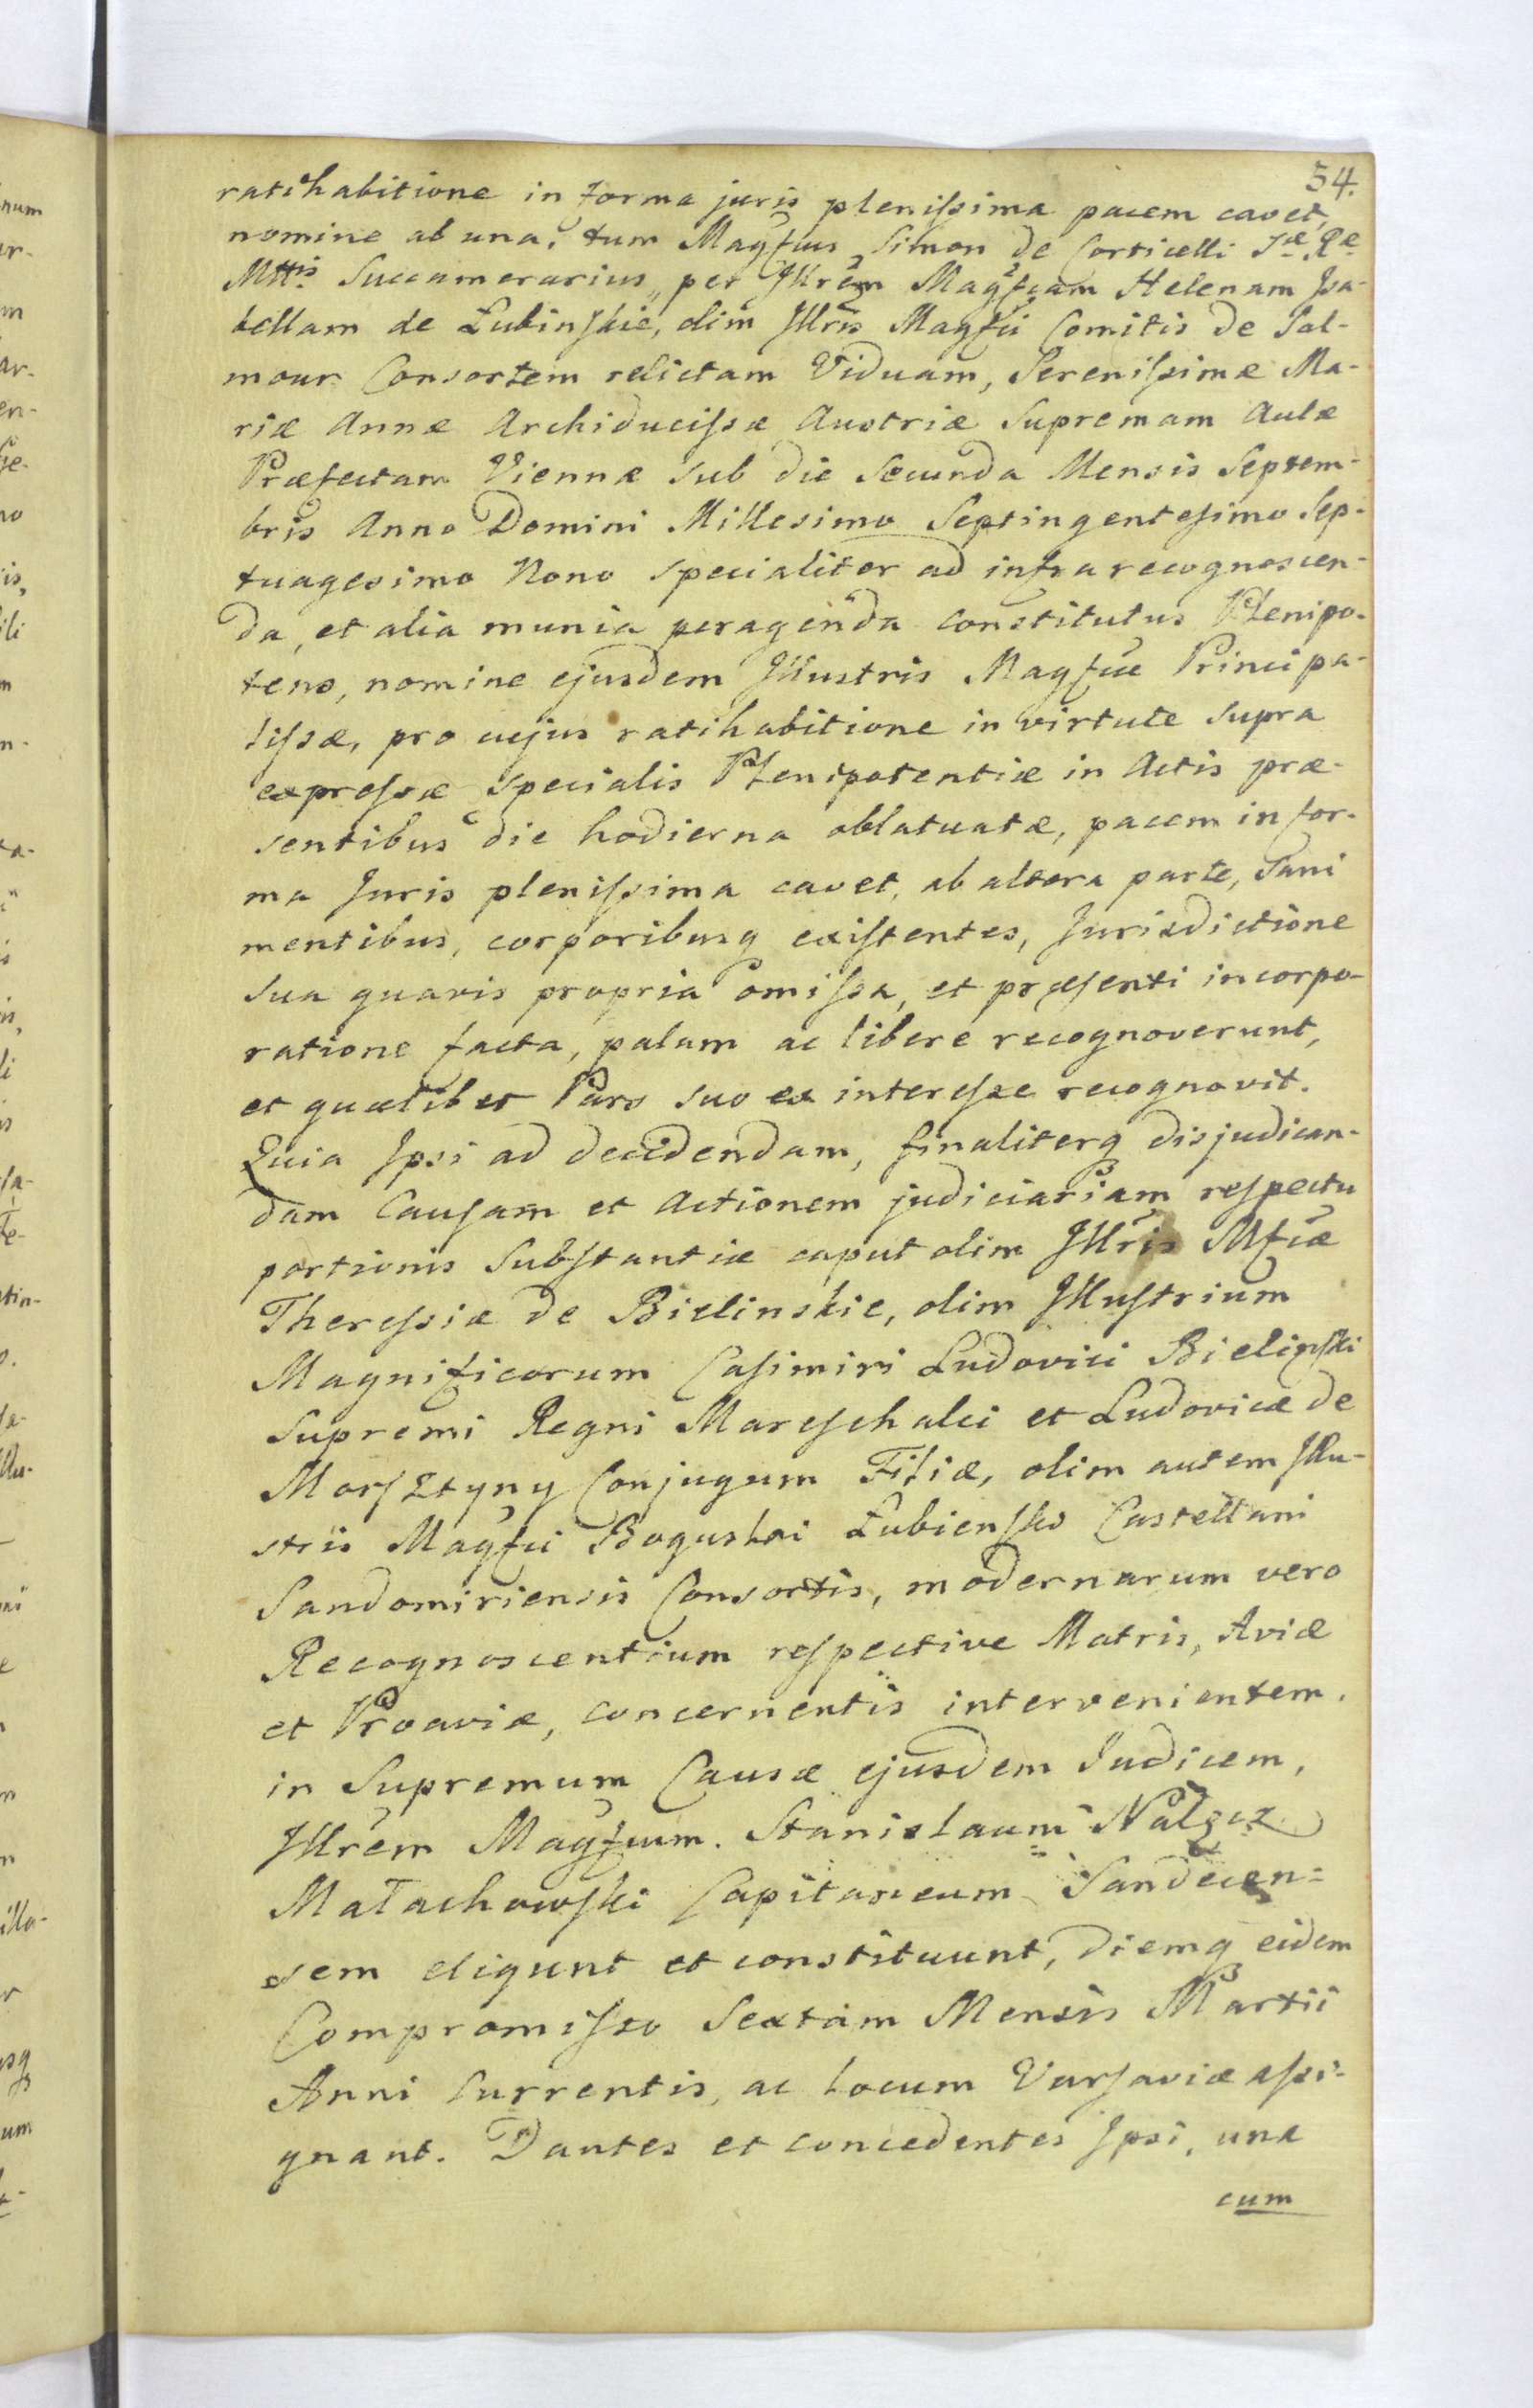 54.
ratihabitione in forma juris plenissima pacem cavet,
nomine ab una, tum Magfcus Simon de Corticelli Sæ Ræ
Mttis Succamerarius, per Illrem Magfcam Helenam Isa-
bellam de Łubinskie, olim Illris Magfci Comitis de Sal-
mour Consortem relictam Viduam, Serenissimæ Ma-
riæ Annæ Archiducissæ Austriæ Supremam Aulæ
Præfectam Viennæ sub die Secunda Mensis Septem-
bris Anno Domini Millesimo Septingentesimo Sep-
tuagesimo Nono specialiter ad infra recognoscen-
da, et alia munia peragenda constitutus Plenipo-
tens, nomine ejusdem Illustris Magfcæ Principa-
lissæ, pro cujus ratihabitione in virtute supra
expressæ specialis Plenipotentiæ in Actis præ-
sentibus die hodierna oblatuatæ, pacem in for-
ma Juris plenissima cavet, ab altera parte, Sani
mentibus, corporibusq existentes, Jurisdictione
sua quavis propria omissa, et præsenti incorpo-
ratione facta, palam ac libere recognoverunt,
et quælibet Pars suo ex interesse recognovit.
Quia Ipsi ad decidendam, finaliterq disjudican-
dam Causam et Actionem judiciariam respectu
portionis Substantiæ caput olim Illris Mfcæ
Theressiæ de Bielinskie, olim Illustrium
Magnificorum Casimiri Ludovici Bielinski
Supremi Regni Mareschalci et Ludovicæ de
Morsztyny Conjugum Filiæ, olim autem Illu-
stris Magfci Boguslai Łubiensko Castellani
Sandomiriensis Consortis, modernarum vero
Recognoscentium respective Matris, Aviæ
et Proaviæ, concernentis intervenientem,
in Supremum Causæ ejusdem Judicem,
Illrem Magfcum. Stanislaum Nałęcz
Małachowski Capitaneum Sandecen=
sem eligunt et constituunt, Diemq eidem
Compromisso Sextam Mensis Martii
Anni Currentis, ac Locum Varsaviæ assi-
gnant. Dantes et concedentes Ipsi, una
cum